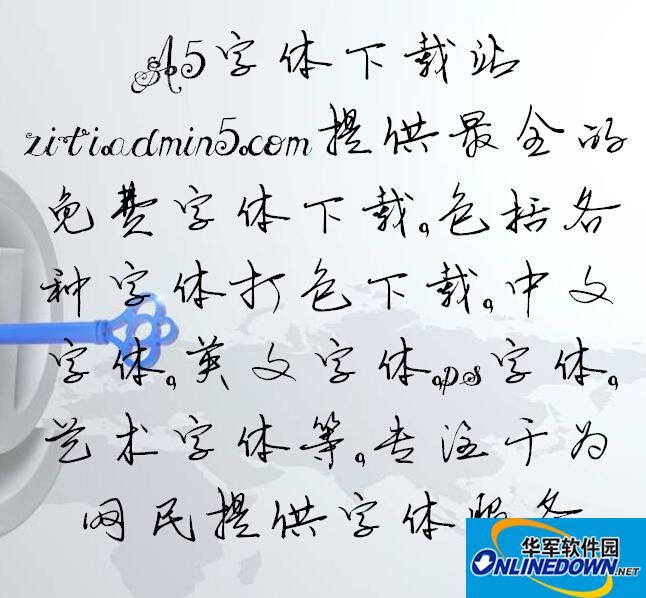 A5字体下载站
ziti.admin5.com提供最全的
免费字体下载。包括各
种字体打包下载。中文
字体。英文字体。ps字体,
艺术字体等。专注于为
网民提供字体服务
华军软件园
ONLINEDOWN.NET